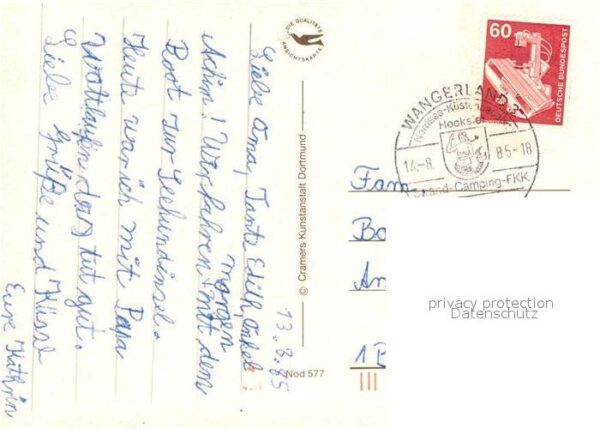 13.8.85
Liebe Oma, Tante Edith, Onkel
Achim! Wir fahren morgen mit dem
Boot zur Seehundinsel.
Heute war ich mit Papa
Wattlaufen, das tut gut.
Liebe Grüße und Küsse
Eure Kathrin
DIE QUALITÄTS
ANSICHTSKARTE
© Cramers Kunstanstalt Dortmund
Nod 577
60
DEUTSCHE BUNDESPOST
WANGERLAND 3
Nordsee-Küstenbadeort
Hooksiel
14.-8. 85-18
Strand-Camping-FKK
Fam.
privacy protection
Datenschutz